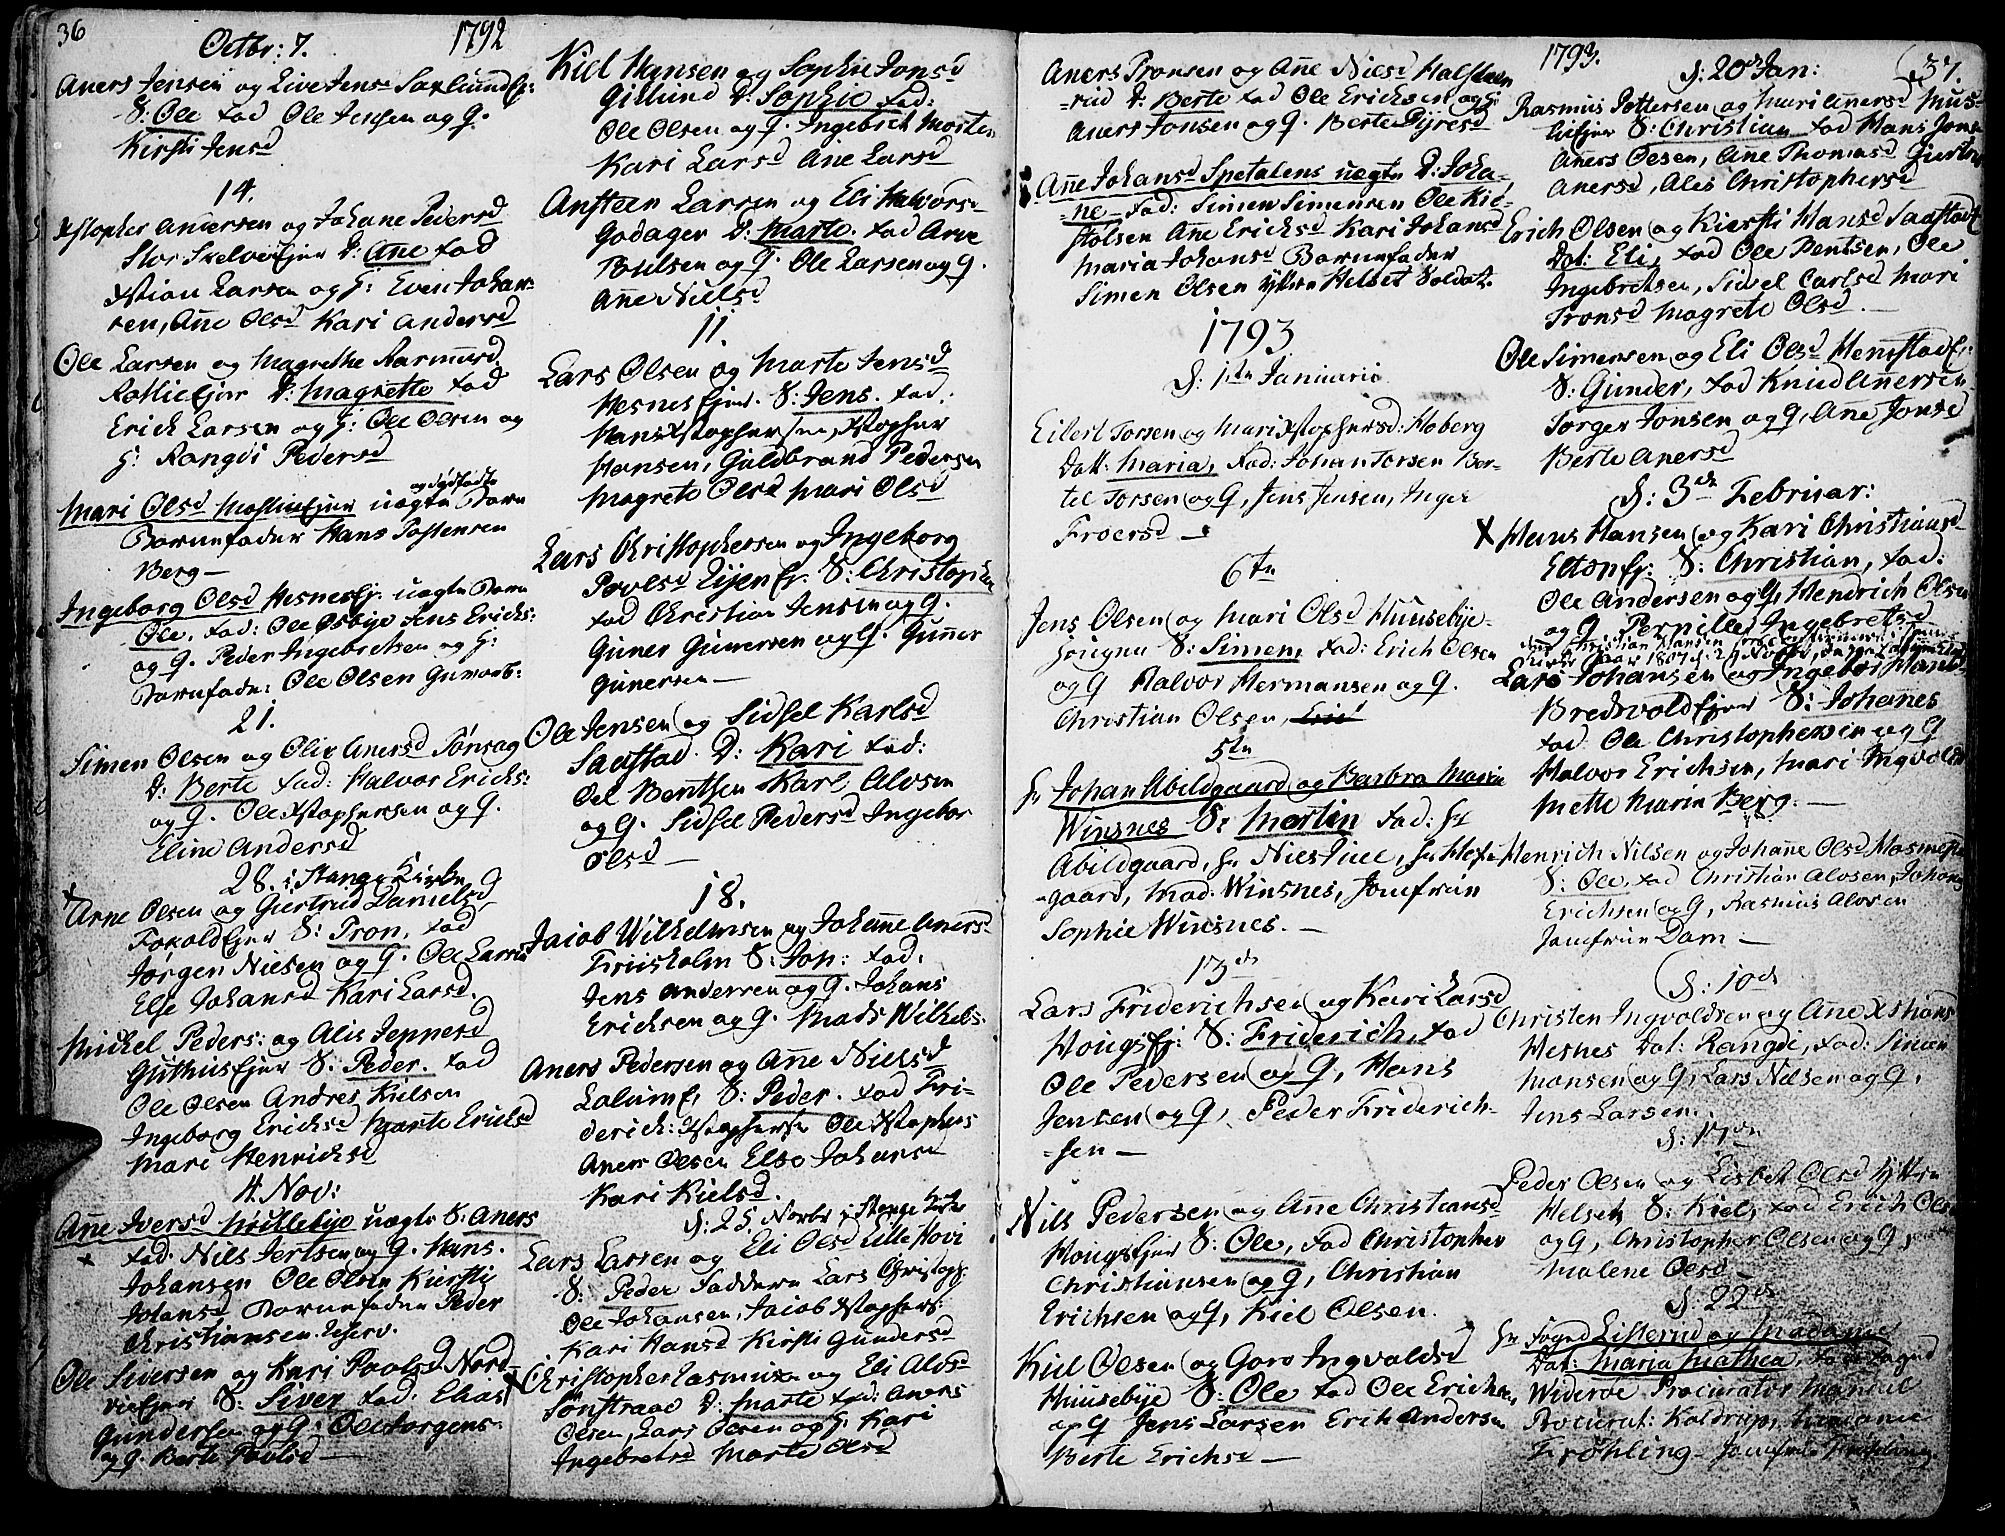 36
Octbr: 7. 1792
Aners Jensen og Live Jensd Saxlund Ejer
S: Ole fad Ole Jensen og G.
Kirsti Jensd
14.
Xstopher Andersen og Johane Pedersd
Stor Skelve Ejer D: Ane fad
Xstian Larsen og G: Even Johan-
sen, Anne Olsd Kari Andersd
Ole Larsen og Magrethe Rasmusd
Rotlie Ejer D: Magrette fad
Erick Larsen og G: Ole Olsen og
G: Rangdi Pedersd
og dødfødte
Mari Olsd uægte Barn
Barnefader Hans Postensen
Berg—
Ingeborg Olsd Hesnes Ej. uægte Barn
Ole, fad: Ole Osbye Jens Ericks:
og G. Peder Ingebretsen og G:
Barnefad: Ole Olsen
21.
Simen Olsen og Oliv Anersd Tønsag
D: Berte fad: Halvor Ericks:
og G. Ole Xstophersen og G.
Eline Andersd
28. i Stange Kirke
Arne Olsen og Giertrud Danielsd
S: Tron, fad
Jørgen Nielsen og G. Ole Larsen
Else Johansd Kari Larsd.
Mickel Peders: og Alis Jeppesd
Guthus Ejer S: Peder. fad
Ole Olsen Andres Kielsen
Ingeborg Ericksd Marte Ericksd
Mari Henricksd
4. Nov:
Anne Iversd uægte S: Aners
fad: Nils Jertsen og G. Hans
Johansen Ole Olsen Kiersti
Johansd Barnefader Peder
Christiansen
Ole Siversen og Kari Poolsd Nord-
vie Ejer S: Siver fad: Elias
Gundersen og G: Ole Torgens:
og G. Berte Poolsd —
Kiel Hansen og Sophie Jonsd
Gillund D: Sophie fad:
Ole Olsen og G. Ingebret Morten
Kari Larsd Ane Larsd
Ansteen Larsen og Eli Halvorsd
Godager D: Marte. fad Arne
Poulsen og G. Ole Larsen og G.
Anne Nielsd
11.
Lars Olsen og Marte Jensd
Hesnes Ejer. S: Jens. fad:
Hans Xstophersen, Xstopher
Hansen, Guldbrand Pedersen
Magrete Olsd Mari Olsd
Lars Christophersen og Ingeborg
Poolsd Eijen Ej. S: Christopher
fad Christian Jensen og G.
Guner Gunersen og G. Gunner
Gunersen —
Ole Jensen og Sidsel Karlsd
Saastad. D: Kari fad:
Oel Bentsen Karl Alosen
og G. Sidsel Pedersd Ingebor
Olsd —
18.
Jacob Wilhelmsen og Johanne Anersd
Friisholm S: Jon: fad:
Jens Andersen og G. Johans
Ericksen og G. Mads Wilhels.
Aners Pedersen og Anne Nielsd
Lalum Ej S: Peder. fad Fri-
derich: Xstophersen Ole Xstophers
Aners Olsen Else Johansd
Kari Kielsd.
d: 25 Novbr i Stange Kirke
Lars Larsen og Eli Olsd Lille Hovi
S: Peder Faddern Lars Christoph
Ole Johansen, Jacob Xstophers:
Kari Hansd Kirsti Gundersd
Christopher Rasmusen og Eli Alosd
D: Marte fad: Aners
Olsen, Lars Olsen og G. Kari
Ingebretsd Marte Olsd
1793. 37.
Aners Tronsen og Anne Nielsd Halsteen-
-rud D: Berte fad Ole Ericksen og G:
Aners Jonsen og G. Berte Syresd
Anne Johansd Spetalens uægte D: Joha-
-ne— fad: Simen Simensen Ole Kie-
stolsen Ane Ericksd Kari Johansd
Maria Johansd Barnefader
Simen Olsen Ytten Helset Soldat.
1793
d: 1ste Januarii
Eilert Torsen og Mari Xstophersd: Hoberg
Datt: Maria, Fad: Johan Torsen Ber-
tel Torsen og G, Jens Jensen, Inger
Froersd —
6te
Jens Olsen og Mari Olsd Huusebye-
S: Simen, fad: Erich Olsen
og G Halvor Hermansen og G.
Christian Olsen,
5te
Hr Johan Abildgaard og Barbra Maria
Winsnes S: Morten fad: Hr
Abildgaard, Hr Niels Juel, Hr
-gaard, Mad: Winsnes, Jomfruen
Sophie Winsnes. —
13de
Lars Friderichsen og Kari Larsd
Hougs Ej: S: Friderich, fad
Ole Pedersen og G, Hans
Jensen og G, Peder Friderich-
-sen —
Nils Pedersen og Ane Christiansd
Hougs Ejer S: Ole, fad Christopher
Christiansen og G, Christian
Erichsen og G, Kiel Olsen.
Kiel Olsen og Goro Ingvaldsd
Huusebye S: Ole fad Ole Erichsen,
og G Jens Larsen Erich Andersen
Berte Erichsd —
d: 20de Jan:
Rasmus Pettersen og Mari Anersd
S: Christian fad Hans Jonsen
Aners Olsen, Ane Thomasd
Anersd, Ales Christophersd
Erich Olsen og Kiersti Hansd Saastad
Dat: Eli, fad Ole Bentsen, Ole
Ingebretsen, Sidsel Carlsd Mari
Tronsd Magrete Olsd. —
Ole Simensen og Eli Olsd Hemstad Ej:
S: Gunder, fad Knud Anersen
Torger Jonsen og G, Ane Jonsd
Berte Anersd
d: 3de Februar:
Hans Hansen og Kari Christiansd
Elton Ej: S: Christian, fad:
Ole Andersen og G, Hendrich Olsen
og G Pernille Ingebretsd
Lars Johansen og Ingebor Hansd
Bredvold Ejer S: Johanes
fad: Ole Christophersen og G
Halvor Erichsen, Mari Ingvoldsd
Mette Marie Berg. —
Henrich Nilsen og Johanne Olsd
S: Ole, fad Christian Alosen, Johans
Erichsen og G, Rasmus Alosen
Jomfrue Dam —
d: 10de
Christen Ingvoldsen og Ane Xstiansd
Hesnes Dat: Rangdi, fad: Simen
Monsen og G, Lars Nilsen og G,
Jens Larsen.
d: 17de
Peder Olsen og Lisbet Olsd Ytten
Helset S: Kiel, fad Erich Olsen
og G, Christopher Olsen og G
Malene Olsd —
d: 22de
Hr Foged Listerud og Madame
Dat: Maria Mathea, fad: Foged
Wideroe Procurator
Procurat: Koldrup, Madame
Frøhling — Jomfrue